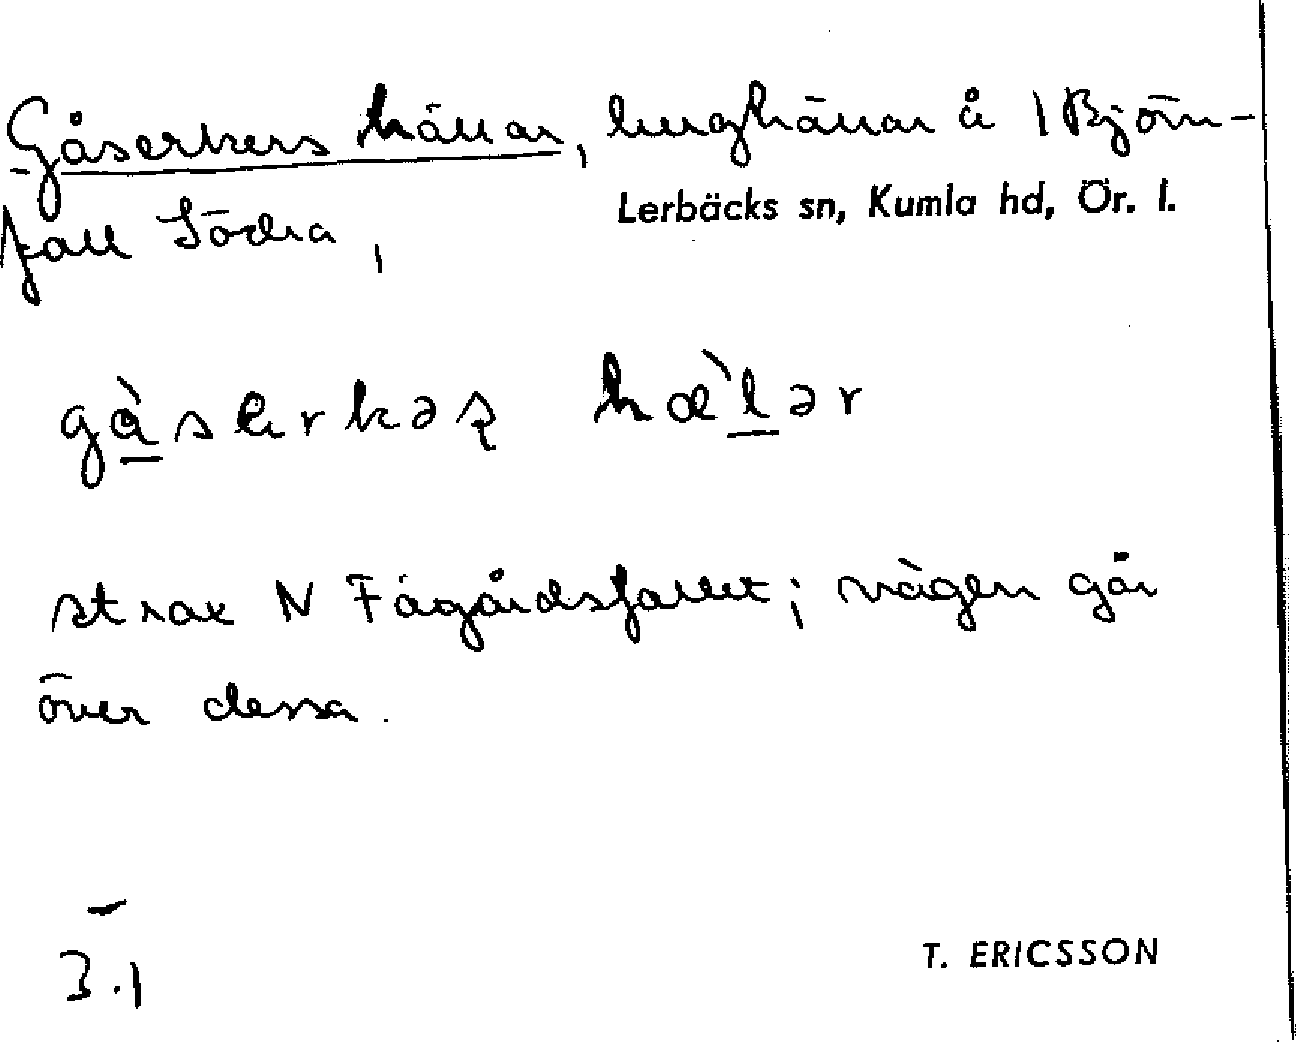 Gåserkers hällar, berghällar å 1 Björn-
fall Södra,
Lerbäcks sn, Kumla hd, Ör. l.
gà̱serkəʂ hæ̀ḻər
strax N Fågårdsfallet; vägen går
över dessa.
3.1
T. ERICSSON